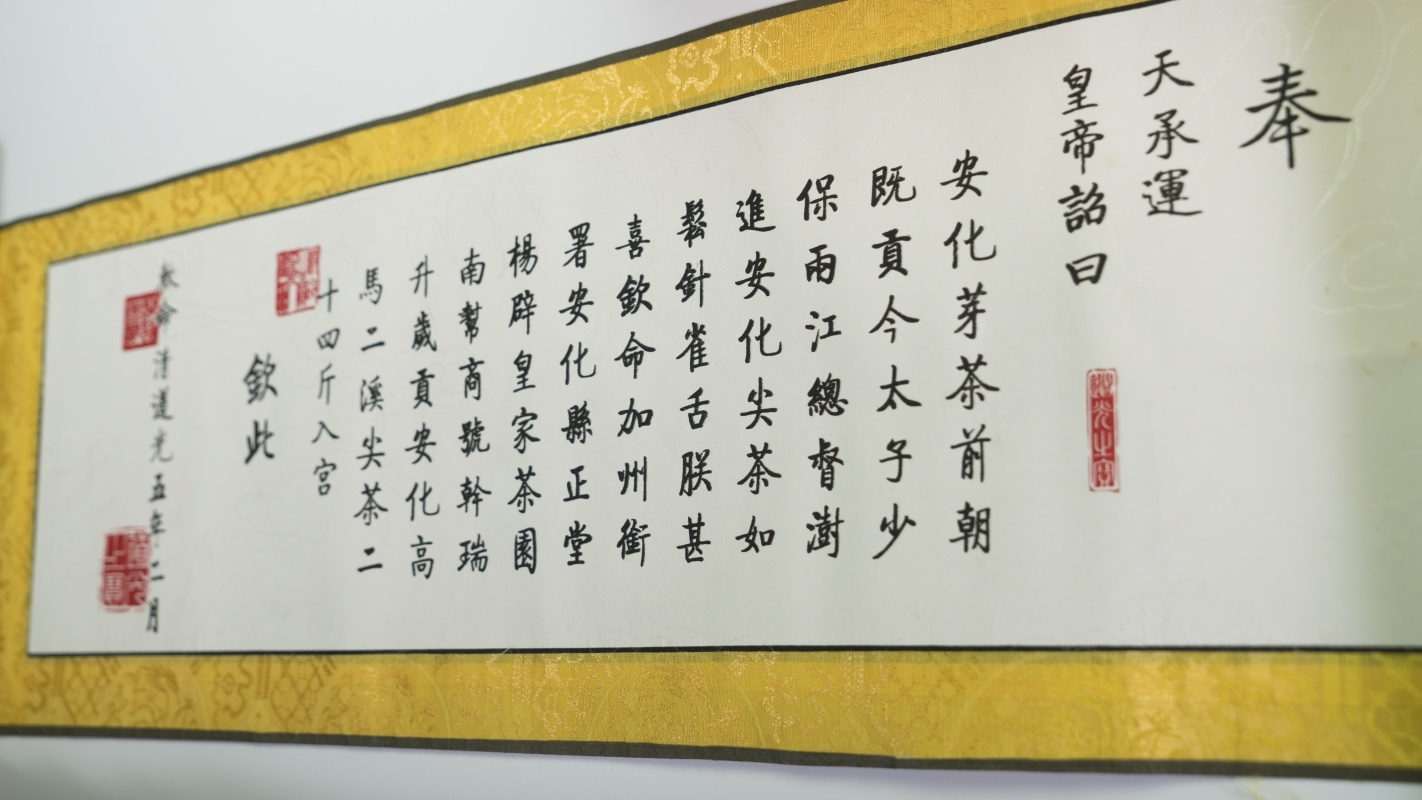 奉
天承運
皇帝詔曰
安化芽茶前朝
既貢今太子少
保兩江總督澍
進安化尖茶如
鬆針雀舌朕甚
喜欽命加州銜
署安化縣正堂
楊辟皇家茶園
南幫商號幹瑞
升歲貢安化高
馬二溪尖茶二
十四斤入宮
欽此
命清道光五年二月